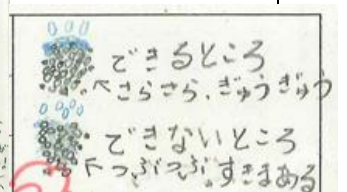 できるところ
↖さらさら、ぎゅうぎゅう
できないところ
↖つぶつぶ、すきまある